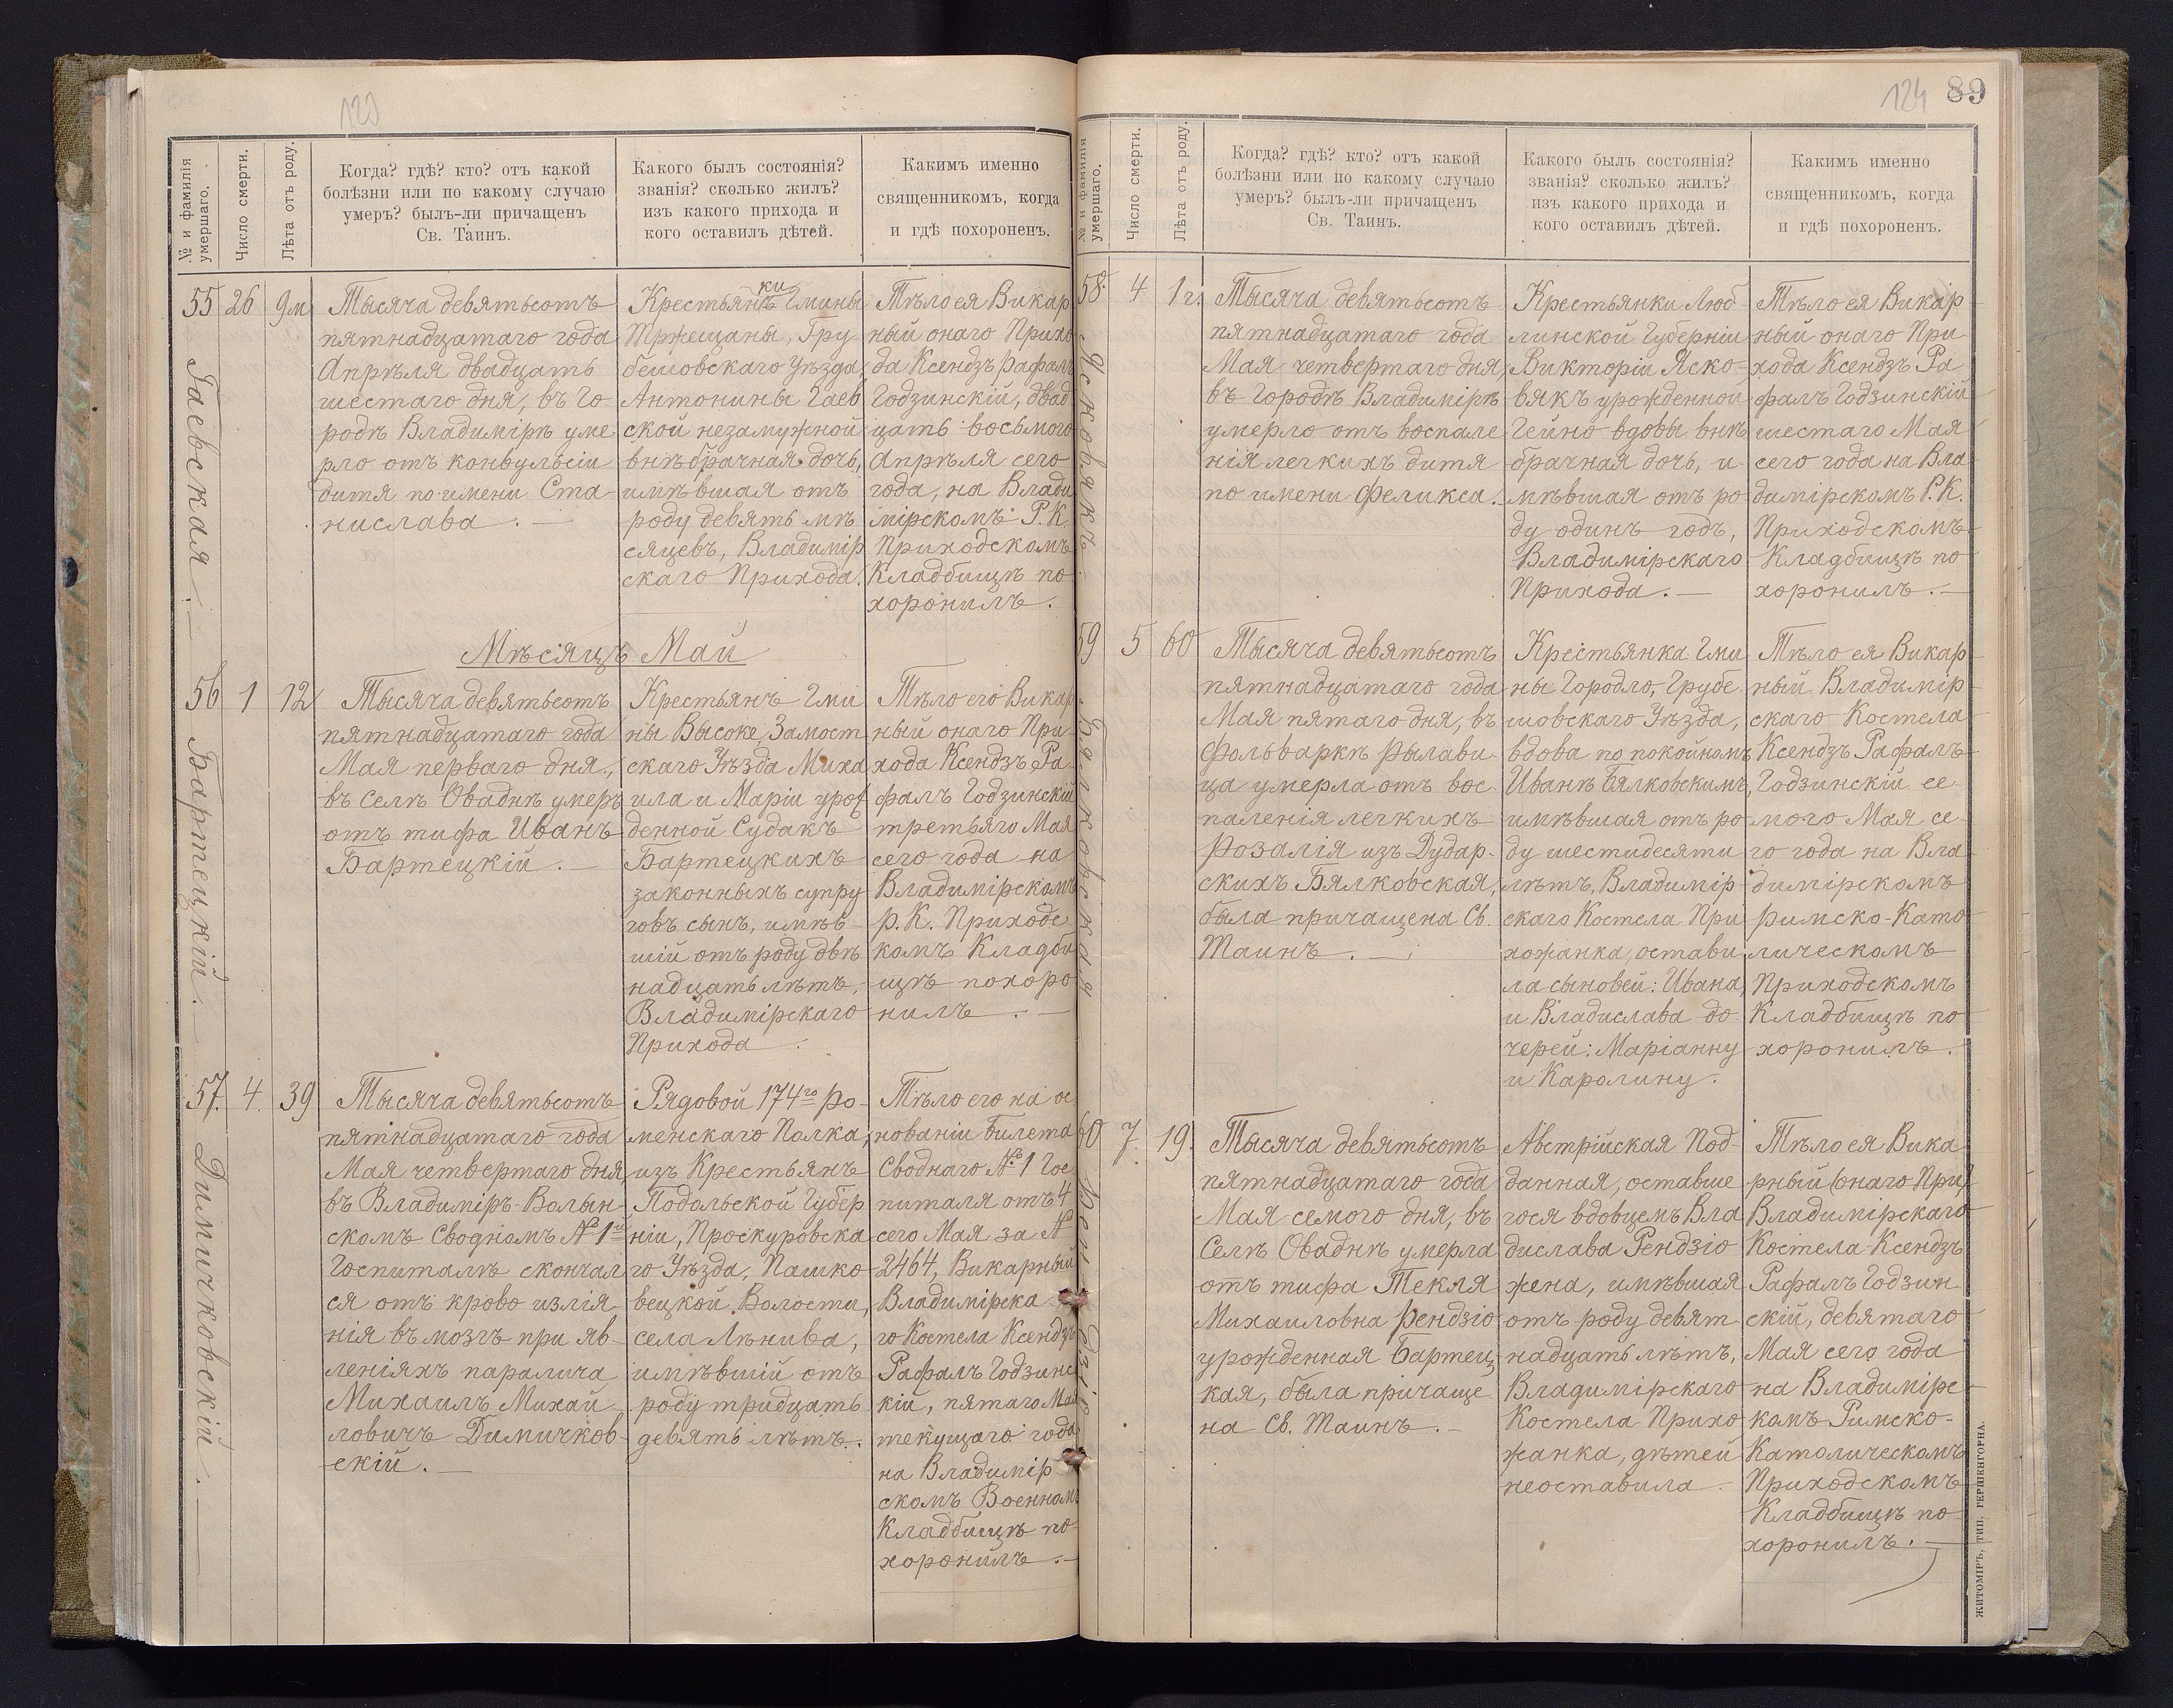 123
№ и фамилія
умершаго.
Число смерти.
Лѣта отъ роду.
Когда? гдѣ? кто? отъ какой
болѣзни или по какому случаю
умеръ? былъ-ли причащенъ
Св. Таинъ.
Какого былъ состоянія?
званія? сколько жилъ?
изъ какого прихода и
кого оставилъ дѣтей.
Каким именно
священникомъ, когда
и гдѣ похороненъ.
55
Гаевская.
26
9 м
Тысяча девятьсотъ
пятнадцатаго года
Апрѣля двадцать
шестаго дня, въ Го
родѣ Владимірѣ уме
рло отъ конвульсіи
дитя по имени Ста-
нислава.
Крестьянки Гмины
Тржещаны, Гру
бешовскаго Уѣзда
Антонины Гаев
ской незамужной
внѣбрачная дочь,
имѣвшая отъ
роду девять мѣ
сяцевъ, Владимір
скаго Прихода.
Тѣло ея Викар
ный онаго Прихо
да Ксендзъ Рафалъ
Годзинскій, двад
цать восьмого
Апрѣля сего
года, на Влади
мірскомъ Р. К.
Приходскомъ
Кладбищѣ по
хоронилъ.
Мѣсяцъ Май
56
Бартецкій.
1
12
Тысяча девятьсотъ
пятнадцатаго года
Мая перваго дня,
въ Селѣ Оваднѣ умеръ
отъ тифа Иванъ
Бартецкій.
Крестьянъ Гми
ны Высоке, Замост
скаго Уѣзда Миха
ила и Маріи урож
денной Судакъ
Бартецкихъ
законныхъ супру
говъ сынъ, имѣв
шій отъ роду двѣ
надцать лѣтъ,
Владимірскаго
Прихода.
Тѣло его Викар
ный онаго При-
хода Ксендзъ Ра-
фалъ Годзинскій
третьяго Мая
сего года на
Владимірскомъ
Р. К. Приходс
комъ Кладби
щѣ похоро
нилъ.
57.
Димичковскій.
4.
39
Тысяча девятьсотъ
пятнадцатаго года
Мая четвертаго дня,
въ Владиміръ-Волын-
скомъ Сводномъ № 1го
Госпиталѣ скончал
ся отъ крово изліл-
нія въ мозгъ при яв-
леніяхъ паралича
Михаилъ Михай
ловичъ Димичков-
скій.
Рядовой 174го Ро-
менскаго Полка,
изъ Крестьянъ
Подольской Губер
ніи, Проскуровска
го Уѣзда, Пашко-
вецкой Волости,
села Лѣнива,
имѣвшій отъ
роду тридцать
девять лѣтъ.
Тѣло его на ос
нованіи Билета
Своднаго № 1 Гос
питаля отъ 4
сего Мая за №
2464, Викарный
Владимірска
го Костела Ксендзъ
Рафалъ Годзинс
кій, пятаго Мая
текущаго года
на Владимір
скомъ Военномъ
Кладбищѣ по-
хоронилъ.
124
89
№ и фамилія
умершаго.
Число смерти.
Лѣта отъ роду.
Когда? гдѣ? кто? отъ какой
болѣзни или по какому случаю
умеръ? былъ-ли причащенъ
Св. Таинъ.
Какого былъ состоянія?
званія? сколько жилъ?
изъ какого прихода и
кого оставилъ дѣтей.
Каким именно
священникомъ, когда
и гдѣ похороненъ.
58.
Ясковякъ
4
1 г.
Тысяча девятьсотъ
пятнадцатаго года
Мая четвертаго дня,
въ Городѣ Владимірѣ
умерло отъ воспале
нія легкихъ дитя
по имени Феликса.
Крестьянки Люб-
линской Губерніи
Викторіи Яско-
вякъ урожденной
Гейно вдовы внѣ
брачная дочь, и-
мѣвшая отъ ро
ду одинъ годъ,
Владимірскаго
Прихода.
Тѣло ея Викар
ный онаго При
хода Ксендзъ Ра
фалъ Годзинскій
шестаго Мая
сего года на Вла
димірскомъ Р. К.
Приходскомъ
Кладбищѣ по
хоронилъ.
59
Бялковская
5
60
Тысяча девятьсотъ
пятнадцатаго года
Мая пятаго дня, въ
Фольваркѣ Рылави-
ца умерла отъ вос-
паленія легкихъ
Розалія изъ Дудар-
скихъ Бялковская,
была причащена Св.
Таинъ.
Крестьянка Гми
ны Городло, Грубе-
шовскаго Уѣзда,
вдова по покойномъ
Иванѣ Бялковскимъ,
имѣвшая отъ ро
ду шестидесяти
лѣтъ, Владимір-
скаго Костела При
хожанка, остави
ла сыновей: Ивана,
и Владислава до
черей: Маріанну
и Каролину.
Тѣло ея Викар
ный Владимір
скаго Костела
Ксендзъ Рафалъ
Годзинскій се
мого Мая се
го года на Вла
димірскомъ
Римско-Като
лическомъ
Приходскомъ
Кладбищѣ по
хоронилъ.
60
Рендзіо
7.
19.
Тысяча девятьсотъ
пятнадцатаго года
Мая семого дня, въ
Селѣ Оваднѣ умерла
отъ тифа Текля
Михаиловна Рендзіо
урожденная Бартец
кая, была причаще
на Св. Таинъ.
Австрійская Под-
данная, оставше
гося вдовцемъ Вла
дислава Рендзіо
жена, имѣвшая
отъ роду девят
надцать лѣтъ,
Владимірскаго
Костела Прихо
жанка, дѣтей
неоставила.
Тѣло ея Вика
рный (онаго При)
Владимірскаго
Костела Ксендзъ
Рафалъ Годзин
скій, девятаго
Мая сего года
на Владимірс
комъ Римско-
Католическомъ
Приходскомъ
Кладбищѣ по
хоронилъ.
ЖИТОМІРЪ, ТИП. ГЕРШЕНГОРНА.